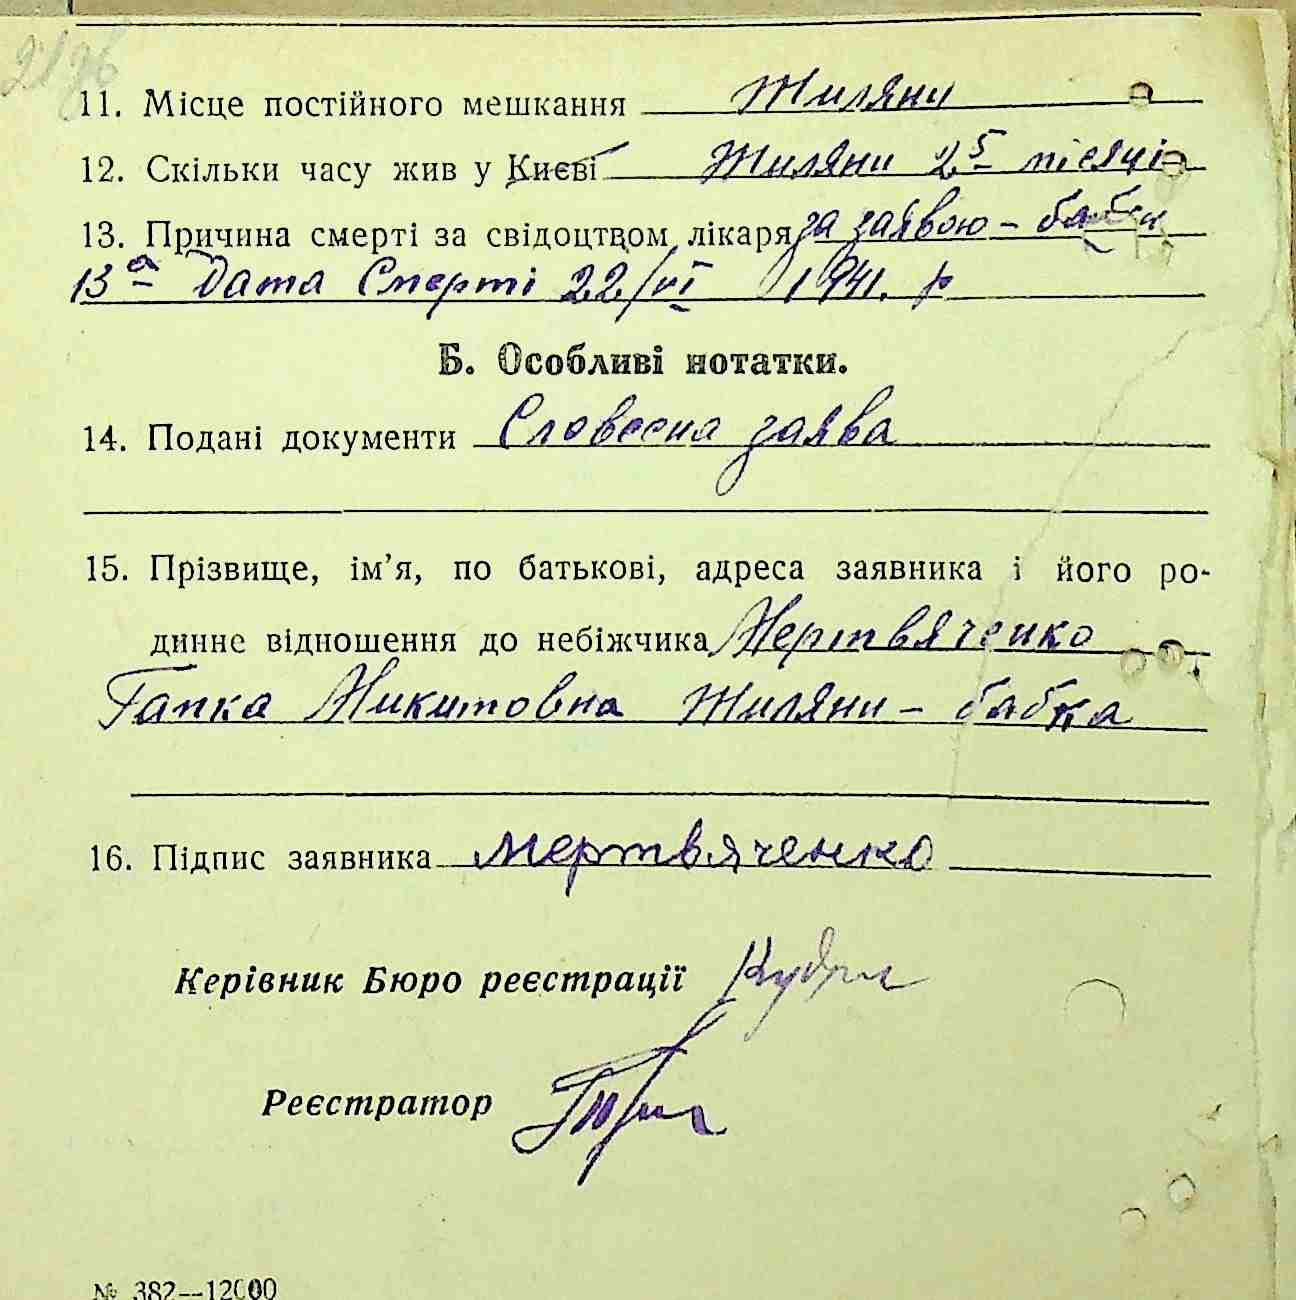 11. Місце постійного мешкання Жиляни
12. Скільки часу жив у Києві Жиляни 2,5 місяці
13. Причина смерті за свідоцтвом лікаря за заявою – бабки
13а Дата Смерті 22/VI 1941. р
Б. Особливі нотатки.
14. Подані документи Словесна заява
15. Прізвище, ім’я, по батькові, адреса заявника і його ро-
динне відношення до небіжчика Мертвяченко
Гапка Микитовна Жиляни – бабка
16. Підпис заявника Мертвяченко
Керівник Бюро реєстрації
Реєстратор
№ 382—12000